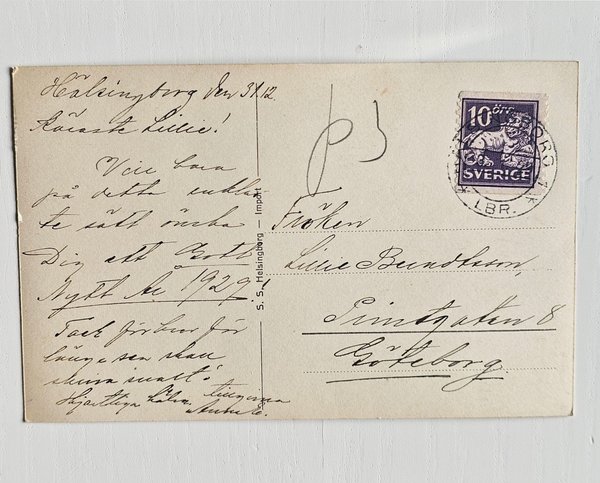 Hälsingborg den 31/12.
Käraste Lillie!
Vill bara
på detta enkla-
te sätt önska
Dig ett Gott
Nytt År 1929!
Tack för bref för
länge sen skall
skriva snart!
Hjärtliga hälsningarna
S. S. Helsingborg — Import
10 ÖRE
SVERIGE
BORG 1
LBR.
Fröken
Lillie Berndtsson,
Göteborg.